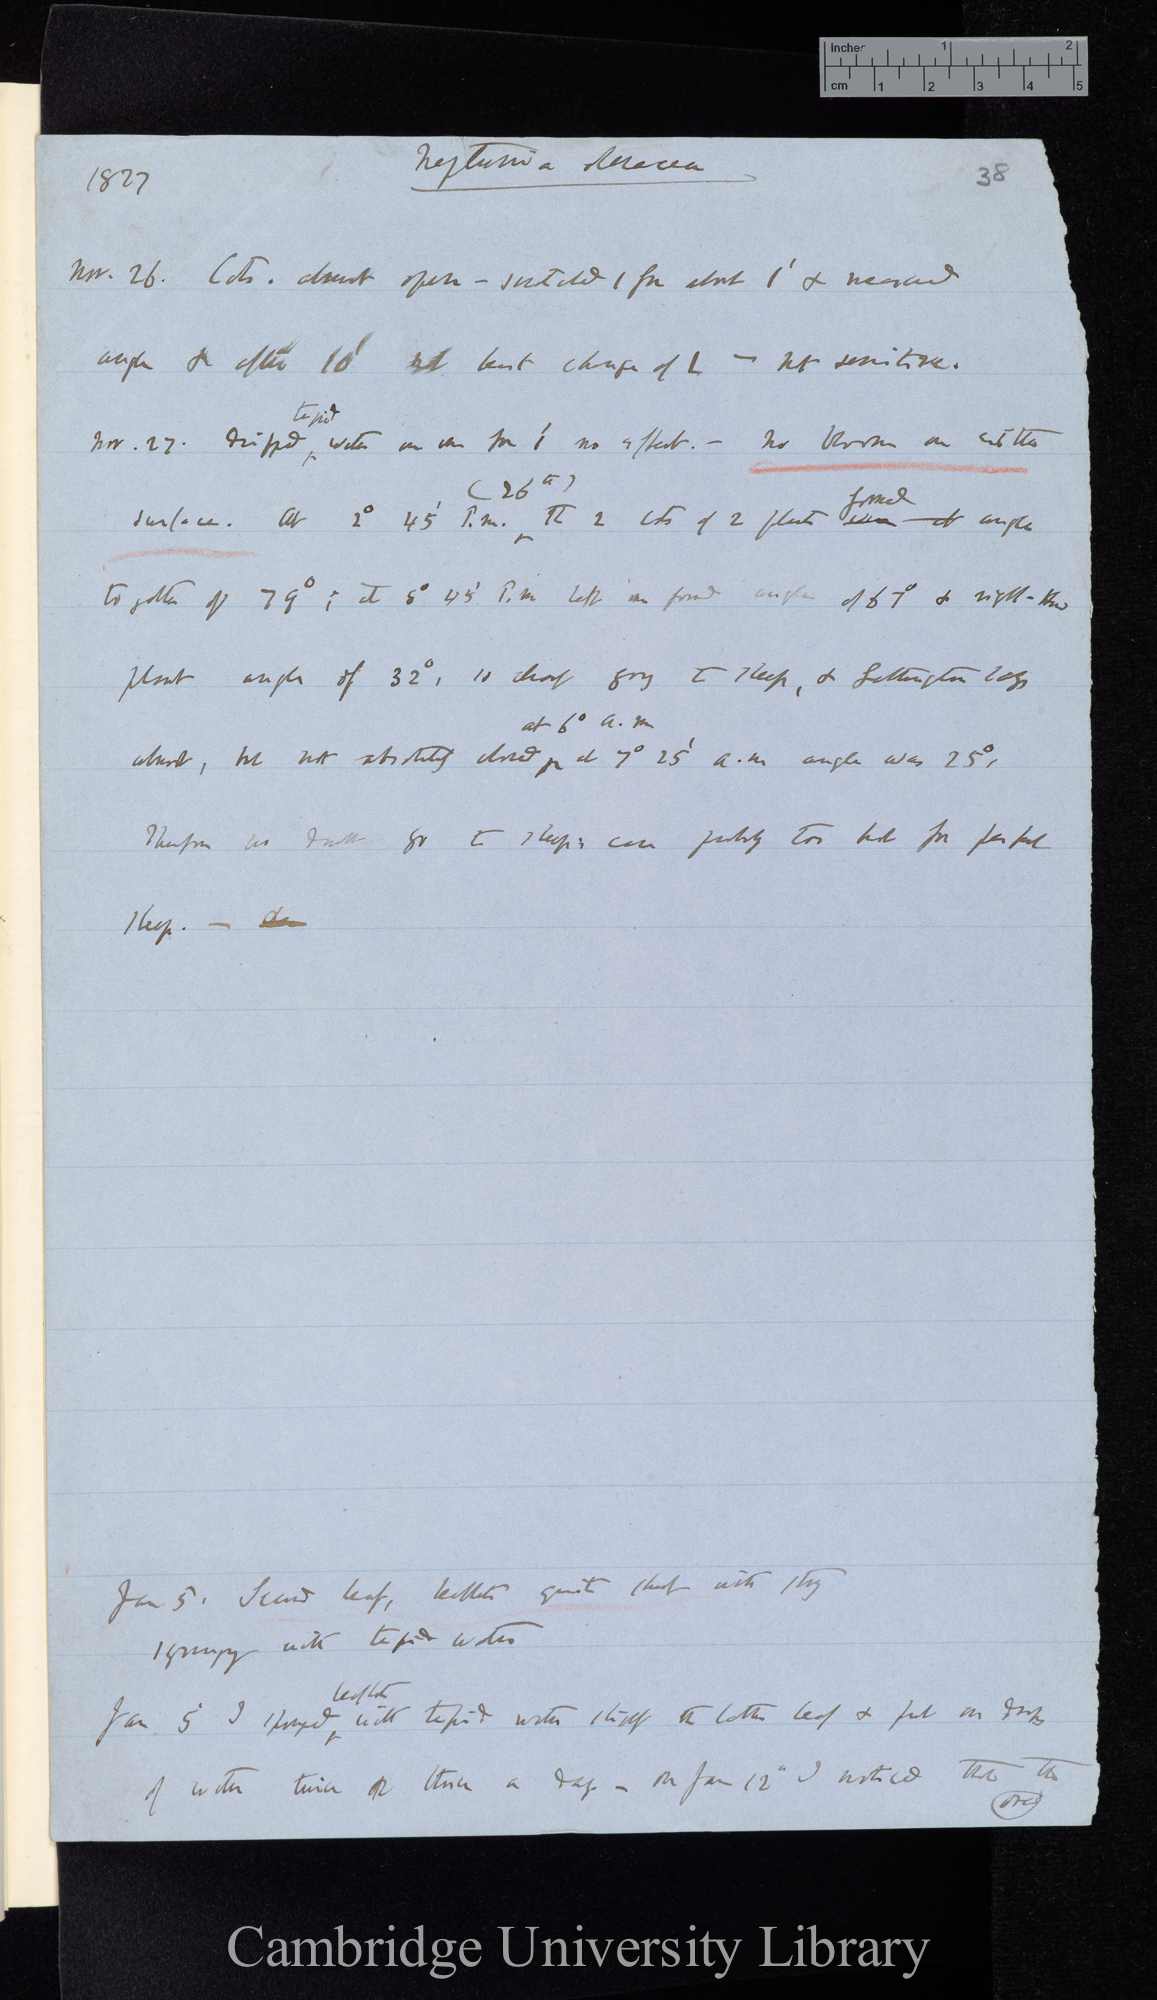 Inches 1 2
cm 1 2 3 4 5
1877 Neptunia oleracea 38
Nov. 26. Cots. almost open – scratched 1 for about 1' & measured
angle & after 10' not least change of L – not sensitive.
tepid
Nov. 27. dripped water on one for 1' no effect. – No bloom on either
(26th) formed
surface. At 2° 45' P.m. The 2 cots of 2 plants angles
together of 79°; at 5° 45' P.m left one formed angle of 67° & right-hand
plant angle of 32°, so clearly going to sleep, & Lettington says
at 6° a.m
almost, but not absolutely closed at 7° 25' a.m angle was 25°,
Therefore no doubt go to sleep; case probably too hot for perfect
sleep. –
Jan 5. Second leaf, leaflets quite shut with
syringing with tepid water
leaflets
Jan 5 I syringed with tepid water the leaf & put on drops
of water twice or thrice a day – on Jan 12th I noticed that the
(over)
Cambridge University Library